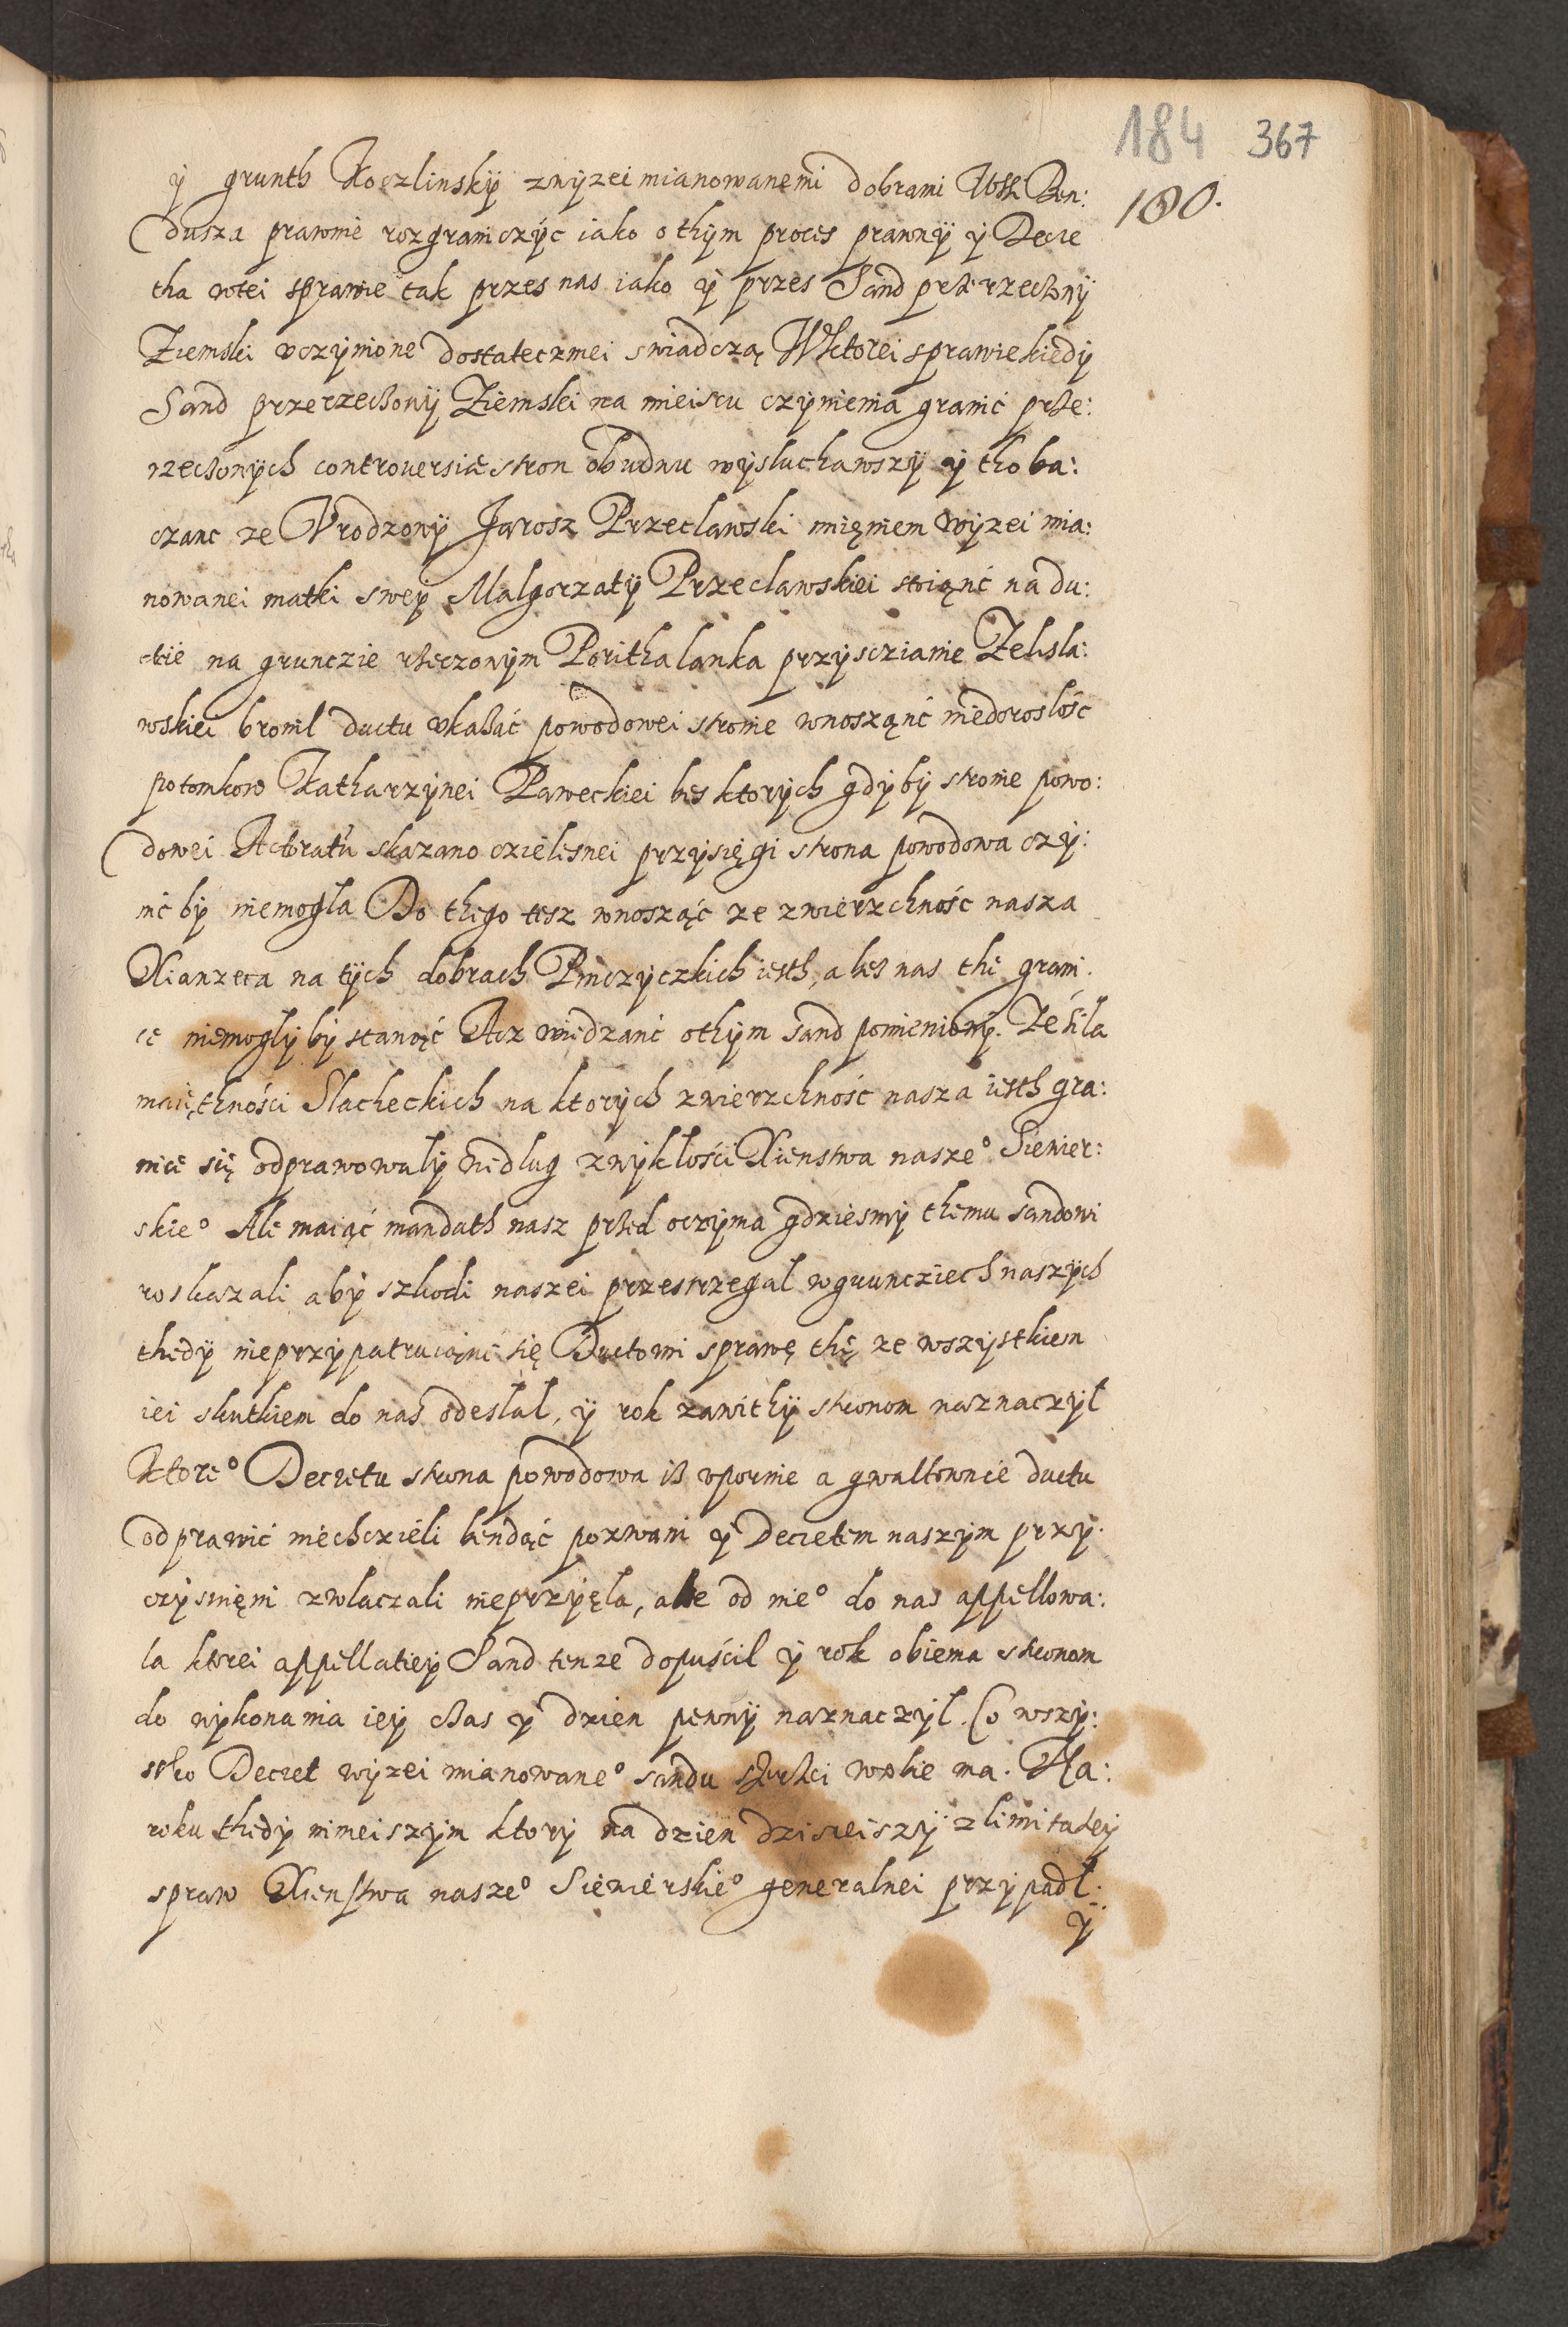 184 367
180.
ÿ grunth Koczlinskÿ zwÿzei mianowanemi dobrami Wsk Ben:
dusza prawnie rozgraniczÿc iako o thÿm proces prawnÿ ÿ Decre
tha wtei sprawie tak przes nas iako ÿ przes Sand przerzeczonÿ
Ziemski vczÿnione dostatecznei swiadczą Wktorei sprawie kiedÿ
Sand przerzeczonÿ Ziemski na mieiscu czÿnienia granic prze:
rzeczonÿch controversiie stron obudwu wÿsluchawszÿ ÿ tho ba:
czanc ze Vrodzonÿ Jarosz Przeclawski imięniem wÿzei mia:
nowanei matki sweÿ Malgorzatÿ Przeclawskiei stoiąnc na du:
ctie na grunczie rzeczonÿm Porithalanka przÿsczianie Zelisla:
wskiei bronil ductu vkazać powodowei stronie wnosząnć niedoroslośc
potomkow Katharzÿnei Paweckiei bes ktorÿch gdÿbÿ stronie powo:
dowei Actoratu skazano czielesnei przÿsięgi strona powodowa czÿ:
nic bÿ niemogla Do thego tesz wnosząć ze zwierzchność nasza
Xianzeca na tÿch dobrach Pinczÿczkich iesth, a bes nas the grani:
ce niemoglÿ bÿ stanąć Acz wiedzanć o thÿm sand pomienionÿ. Ze sila
maięthności Slacheckich na ktorÿch zwierzchność nasza iesth gra:
nice się odprawowalÿ wedlug zwÿklości Xienstwa nasze° Siewier:
skie° Ale maiąć mandath nasz przed oczÿma gdziesmÿ themu sandowi
roskazali abÿ szkodi naszei przestrzegal wgruncziech naszÿch
thedÿ nieprzÿpatruiąnc się Ductowi sprawę thę ze wszÿstkiem
iei skutkiem do nas odeslal, ÿ rok zawithÿ stronom naznaczÿl
Ktore° Decretu strona powodowa iż vpornie a gwaltownie ductu
odprawić niechczieli bendąć pozwani ÿ Decretem naszÿm przÿ:
czÿsnięni zwlaczali nieprzÿęla, ale od nie° do nas appellowa:
la ktorei appellatieÿ Sand tenze dopuścil ÿ rok obiema stronom
do wÿkonania ieÿ czas ÿ dzien pewnÿ naznaczÿl. Co wszÿ:
stko Decret wÿzei mianowane° sandu szerzei wsobie ma. Na:
roku thedÿ ninieiszÿm ktorÿ na dzien dzisieiszÿ z limitatieÿ
spraw Xienstwa nasze° Siewierskie° generalnei przÿpadl:
ÿ